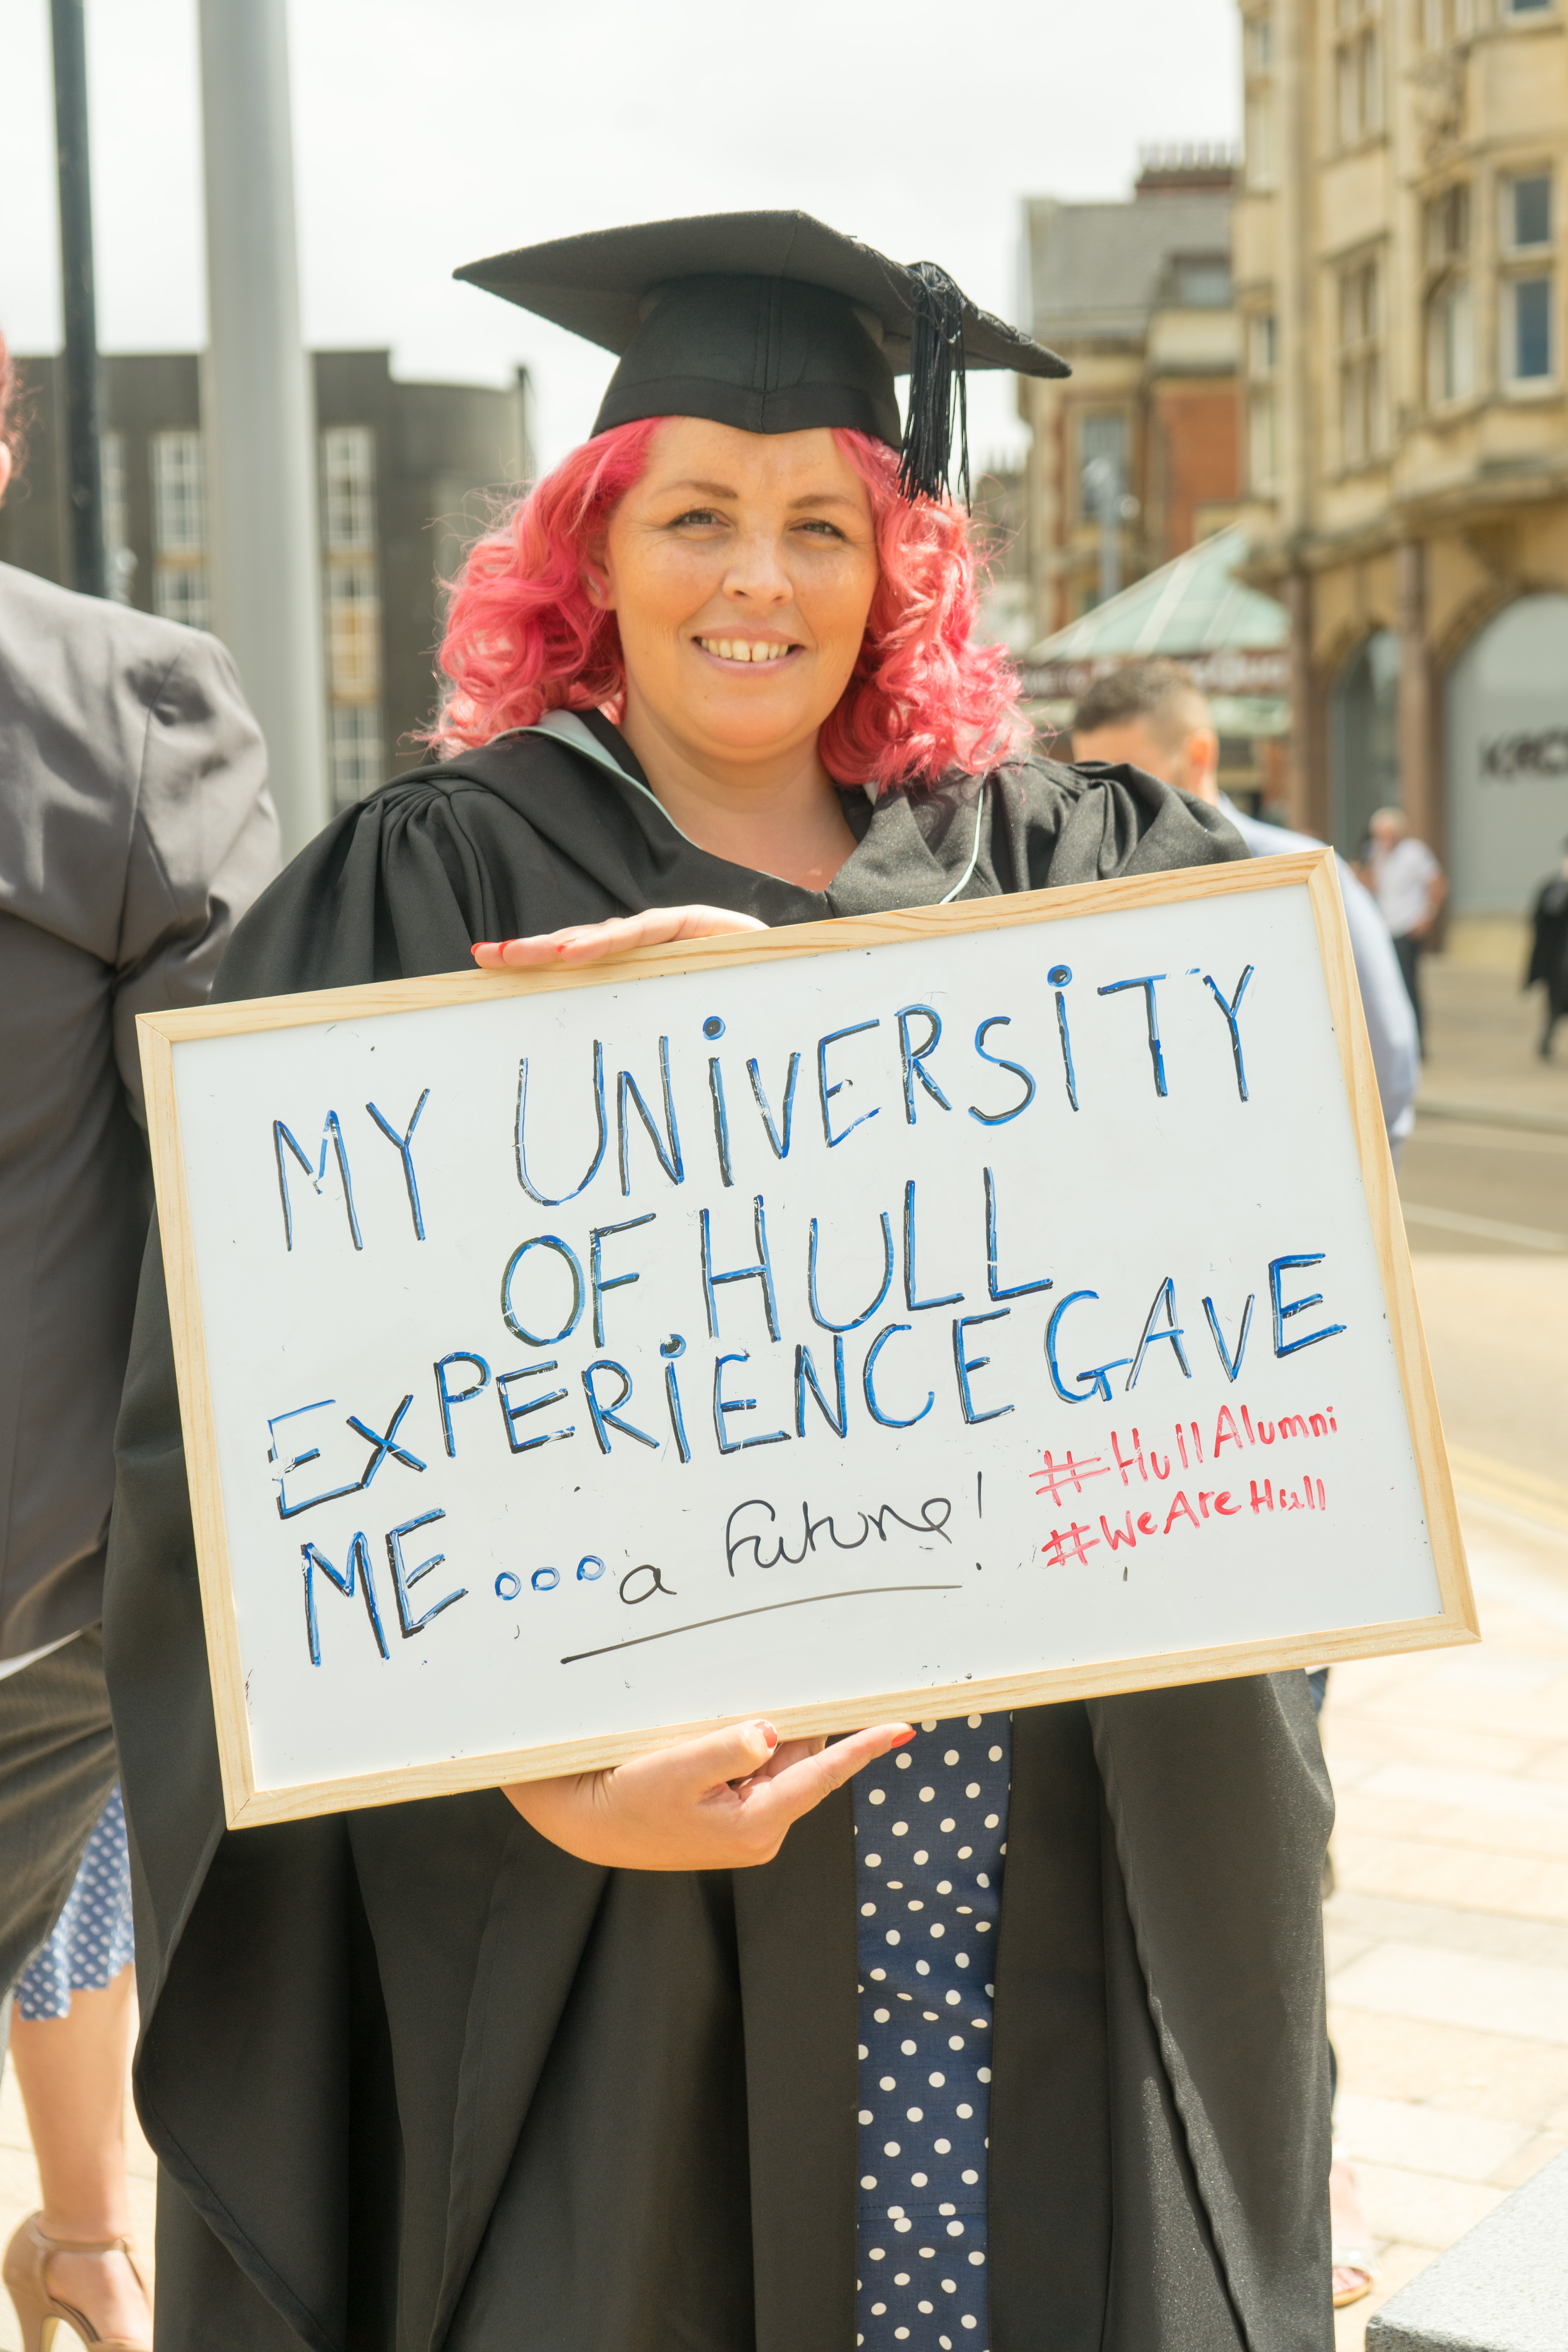 MY UNiVERSiTY
OF HULL
EXPERiENCE GAVE
ME... a future!
#HullAlumni
#WeAreHull